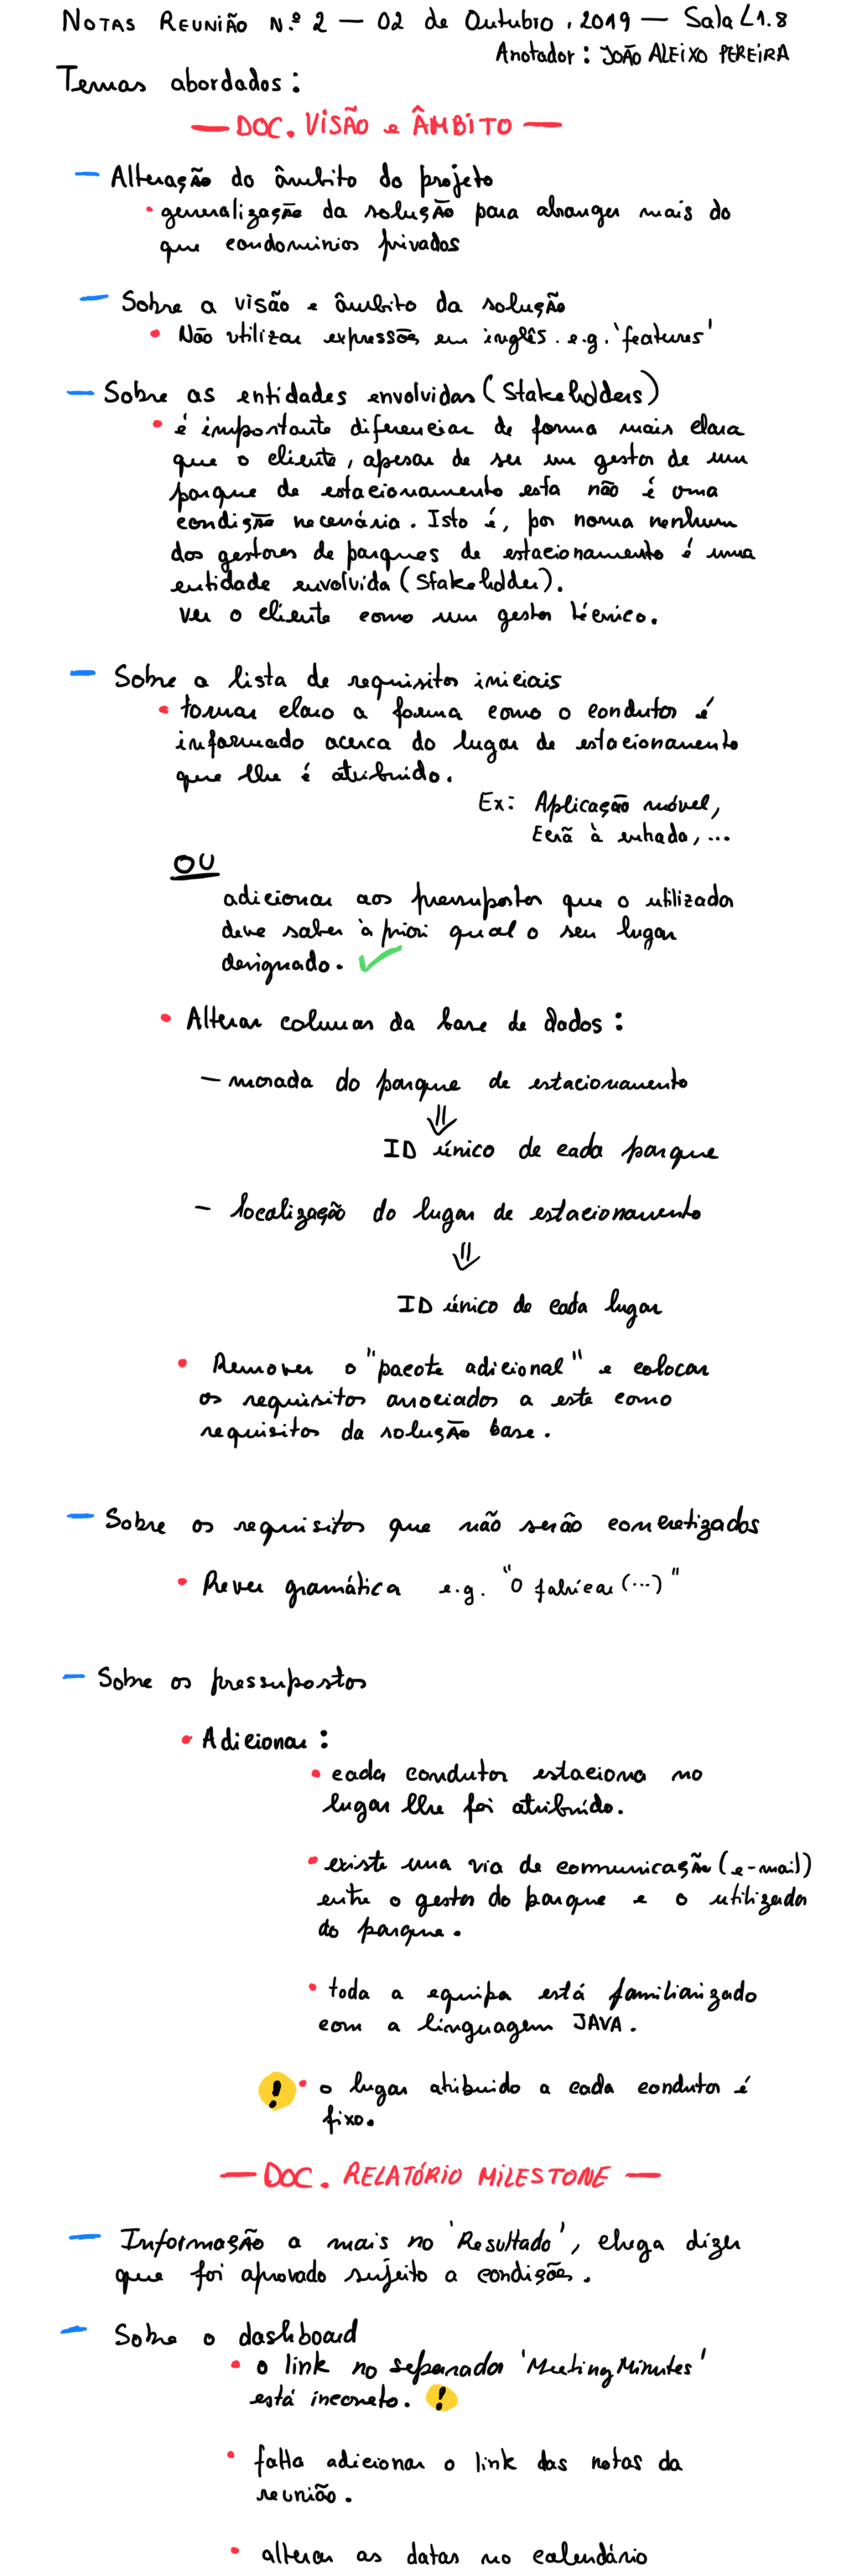 NOTAS REUNIÃO N.º 2 — 02 de Outubro, 2019 — Sala L1.8
Anotador: JOÃO ALEIXO PEREIRA
Temas abordados:
— DOC. VISÃO e ÂMBITO —
— Alteração do âmbito do projeto
• generalização da solução para abranger mais do
que condominios privados
— Sobre a visão e âmbito da solução
• Não utilizar expressões em inglês. e.g. 'features'
— Sobre as entidades envolvidas (Stakeholders)
• é importante diferenciar de forma mais clara
que o cliente, apesar de ser um gestor de um
parque de estacionamento esta não é uma
condição necessária. Isto é, por norma nenhum
dos gestores de parques de estacionamento é uma
entidade envolvida (Stakeholder).
Ver o cliente como um gestor técnico.
— Sobre a lista de requisitos iniciais
• tornar claro a forma como o condutor é
informado acerca do lugar de estacionamento
que lhe é atribuido.
Ex: Aplicação móvel,
Ecrã à entrada, ...
OU
adicionar aos pressupostos que o utilizador
deve saber à priori qual o seu lugar
designado. ✓
• Alterar colunas da base de dados:
— morada do parque de estacionamento
⇓
ID único de cada parque
- localização do lugar de estacionamento
⇓
ID único de cada lugar
• Remover o "pacote adicional" e colocar
os requisitos associados a este como
requisitos da solução base.
— Sobre os requisitos que não serão concretizados
• Rever gramática e.g. "O fabricar (...)"
— Sobre os pressupostos
• Adicionar:
• cada condutor estaciona no
lugar lhe foi atribuído.
• existe uma via de comunicação (e-mail)
entre o gestor do parque e o utilizador
do parque.
• toda a equipa está familiarizado
com a linguagem JAVA.
! • o lugar atribuido a cada condutor é
fixo.
— DOC. RELATÓRIO MILESTONE —
— Informação a mais no 'Resultado', chega dizer
que foi aprovado sujeito a condições.
— Sobre o dashboard
• o link no separador 'Meeting Minutes'
está incorreto. !
• falta adicionar o link das notas da
reunião.
• alterar as datas no calendário